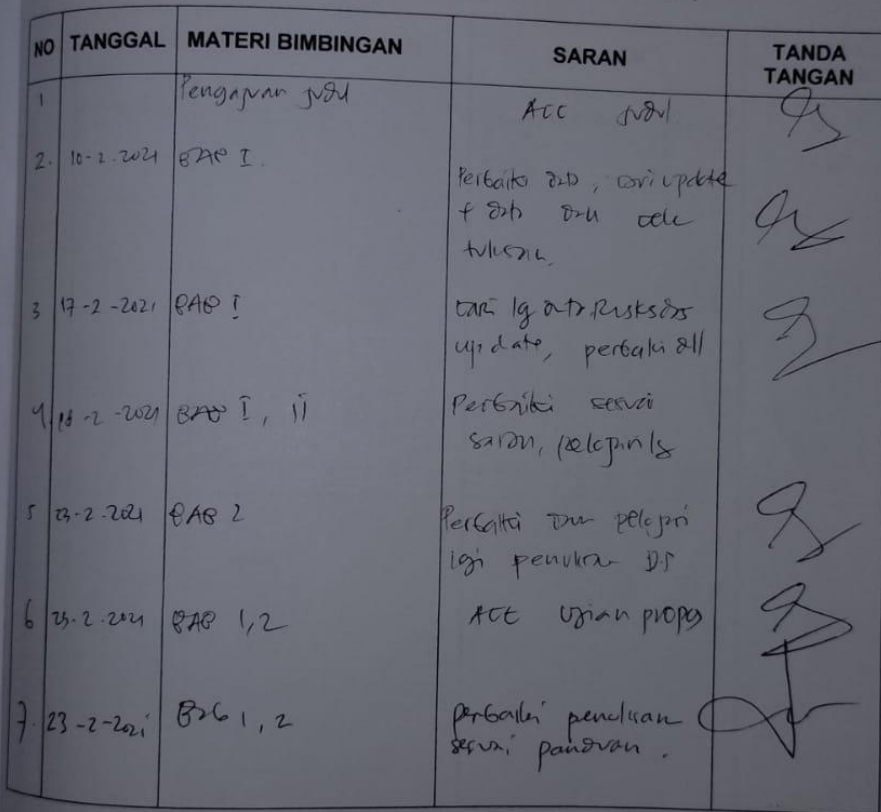 NO TANGGAL MATERI BIMBINGAN SARAN TANDA TANGAN
1 Pengajuan judul ACC judul
2. 10-2-2021 BAB I.
Perbaiki, cari update
+ data dan
tulisan.
3 17-2-2021 BAB I cari lg data Riskesdas
update, perbaiki all
4 -2-2021 BAB I, II Perbaiki sesuai
saran, pelajari lg
5 23-2-2021 BAB 2 Perbaiki dan pelajari
lgi penulisan
6 -2-2021 BAB 1,2 ACC Ujian propos
7. 23-2-2021 Bab 1,2 perbaiki penulisan
sesuai panduan.